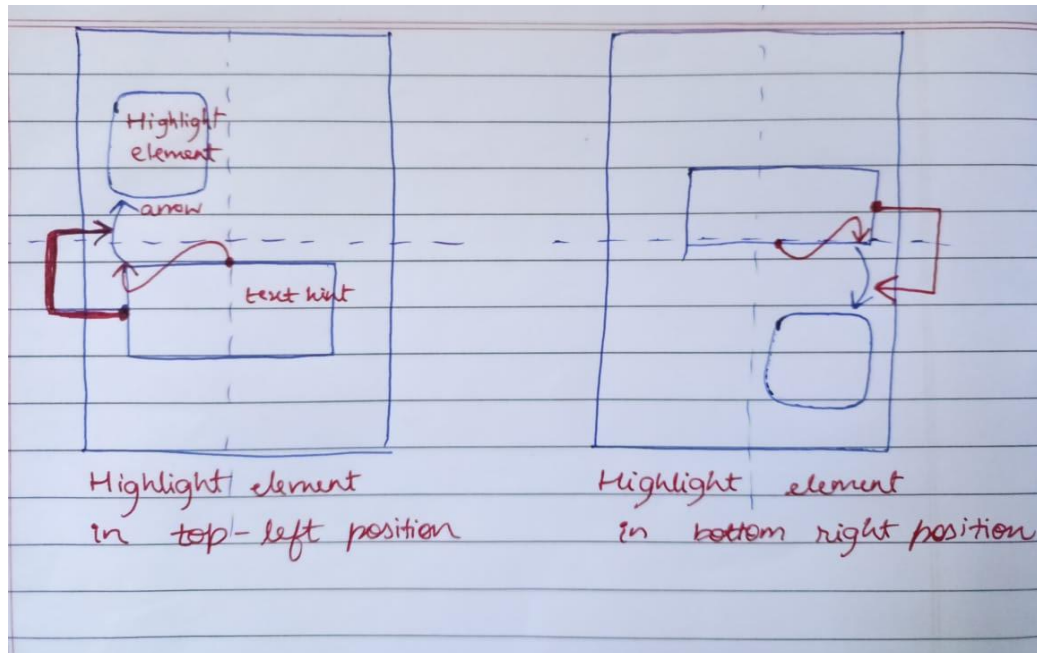 Highlight
element
arrow
text hint
Highlight element
in top-left position
Highlight element
in bottom right position